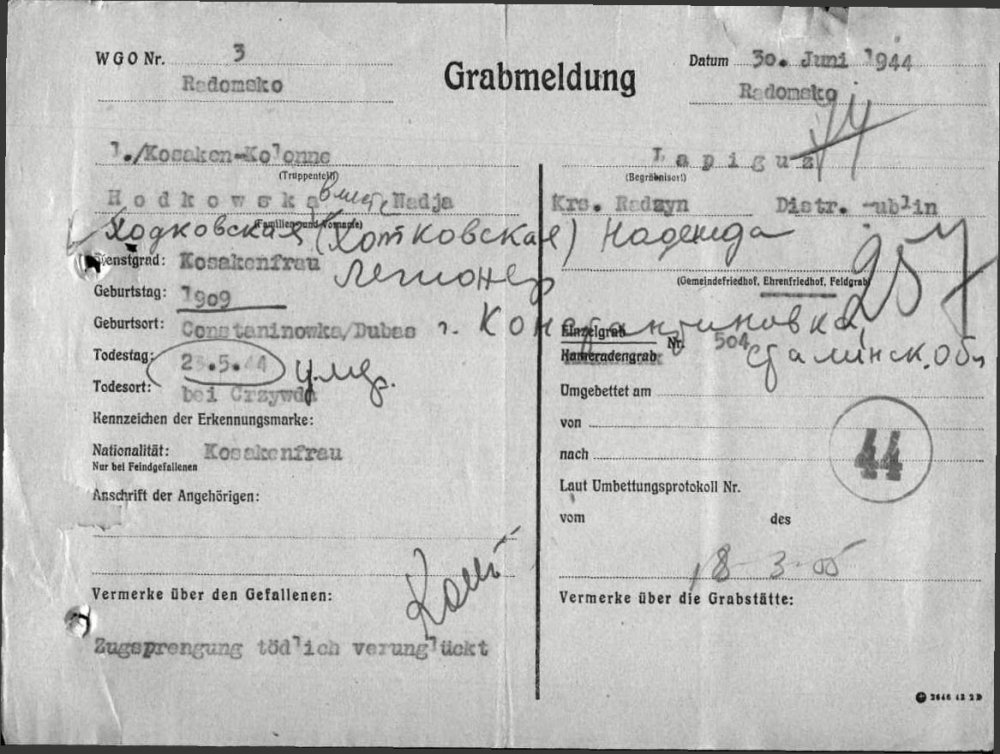 WGO Nr. 3
Radomsko
Grabmeldung
Datum 30. Juni 1944
Radomsko
1./Kosaken-Kolonne
(Truppenteil)
Hodkowska Nadja
(Familien- und Vorname)
Ходковская (Хотковская) Надежда
Dienstgrad: Kosakenfrau легионер
Geburtstag: 1909
Geburtsort: Constaninowka/Dubas г. Константиновка,
Todestag: 23.5.44
Todesort: bei Crzywda
Kennzeichen der Erkennungsmarke:
Nationalität: Kosakenfrau
Nur bei Feindgefallenen
Anschrift der Angehörigen:
Vermerke über den Gefallenen:
Zugsprengung tödlich verunglückt
Lapiguz
(Begräbnisort)
Krs. Radzyn Distr. -ublin
(Gemeindefriedhof, Ehrenfriedhof, Feldgrab)
257
Einzelgrab
Kameradengrab Nr. 504
Сталинск. обл
Umgebettet am
von
nach
44
Laut Umbettungsprotokoll Nr.
vom des
18-3-55
Vermerke über die Grabstätte:
2646 42 2D